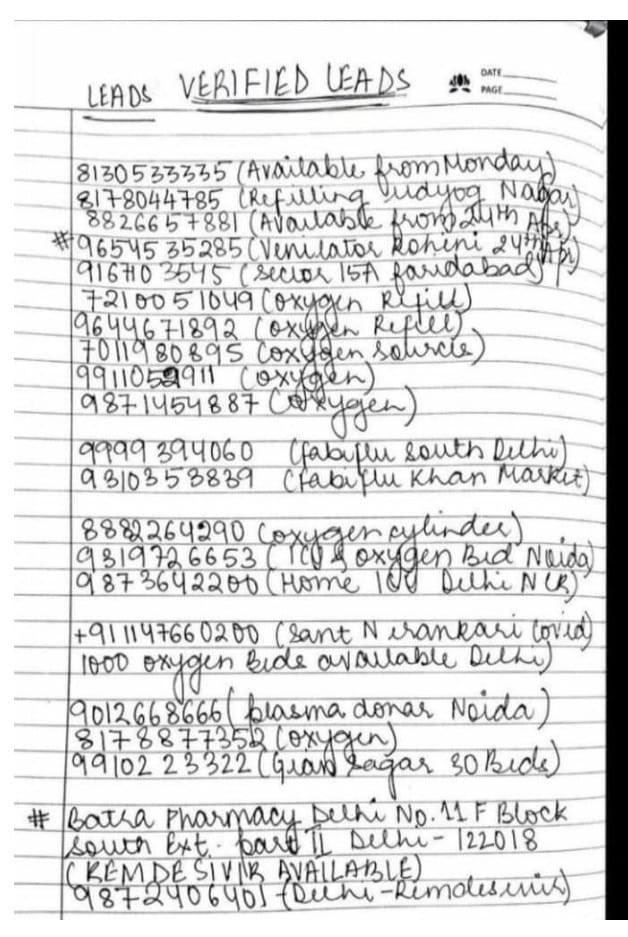 LEADS VERIFIED LEADS
DATE
PAGE
8130533335 (Available from Monday)
8178044785 (Refilling udyog Nagar)
8826657881 (Available from 24th Apr)
# 9654535285 (Venilator Rohini 24th Apr)
9167103545 (Sector 15A faridabad)
7210051049 (oxygen Refill)
9644671892 (oxygen Refill)
7011980895 (oxygen source)
9911052911 (oxygen)
9871454887 (oxygen)
9999394060 (fabiflu South Delhi)
9310353839 (fabiflu Khan Market)
8882264290 (oxygen cylinder)
9319726653 (ICU & oxygen Bed Noida)
9873642200 (Home ICU Delhi NCR)
+911147660200 (Sant Nirankari Covid)
1000 oxygen Beds available Delhi)
9012668666 (plasma donar Noida)
8178877352 (oxygen)
9910223322 (Gian Sagar 30 Beds)
# Batra Pharmacy Delhi No. 11 F Block
South Ext. part II Delhi - 122018
(REMDESIVIR AVAILABLE)
9872406401 (Delhi - Remdesivir)